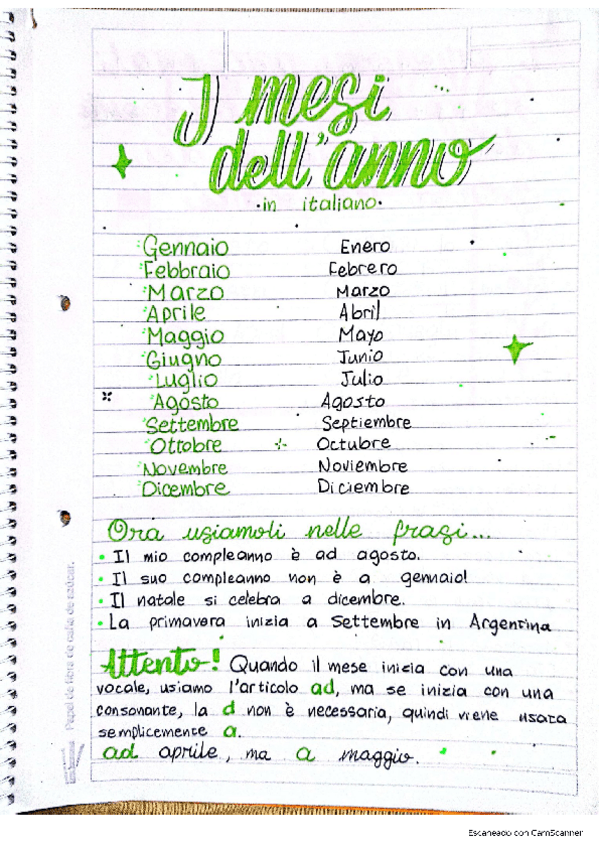 I mesi
dell'anno
•in italiano•
Gennaio Enero
Febbraio Febrero
Marzo Marzo
Aprile Abril
Maggio Mayo
Giugno Junio
Luglio Julio
Agosto Agosto
Settembre Septiembre
Ottobre Octubre
Novembre Noviembre
Dicembre Diciembre
Ora usiamoli nelle frasi...
• Il mio compleanno è ad agosto.
• Il suo compleanno non è a gennaio!
• Il natale si celebra a dicembre.
• La primavera inizia a Settembre in Argentina
Attento! Quando il mese inizia con una
vocale, usiamo l'articolo ad, ma se inizia con una
consonante, la d non è necessaria, quindi viene usata
semplicemente a.
ad aprile, ma a maggio.
Papel de fibra de caña de azúcar.
Escaneado con CamScanner